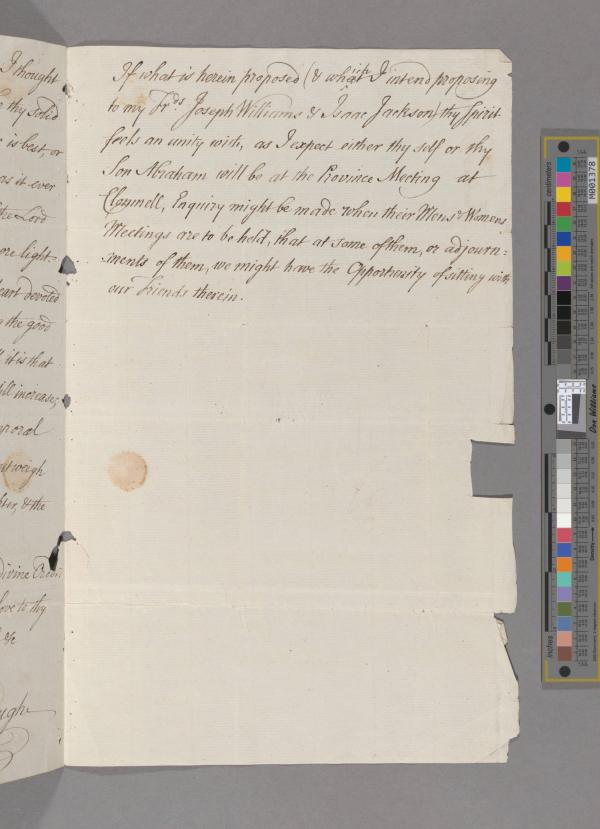 I thought
thy solid
is best, or
as it ever
the Lord
ore light
eart devoted
the good
it is that
ill increase,
poral
weigh
ter, & the
divine
love to thy
&c
If what is herein proposed (& which I intend proposing
to my Frds Joseph Williams & Isaac Jackson) thy Spirit
feels an unity with, as I expect either thy self or thy
Son Abraham will be at the Province Meeting at
Clonmell, Enquiry might be made when their Mens & Womens
Meetings are to be held, that at some of them, or adjourn=
=ments of them, we might have the Opportunity of sitting with
our Friends therein.
centimeters
M001378
Don Williams
Density
inches